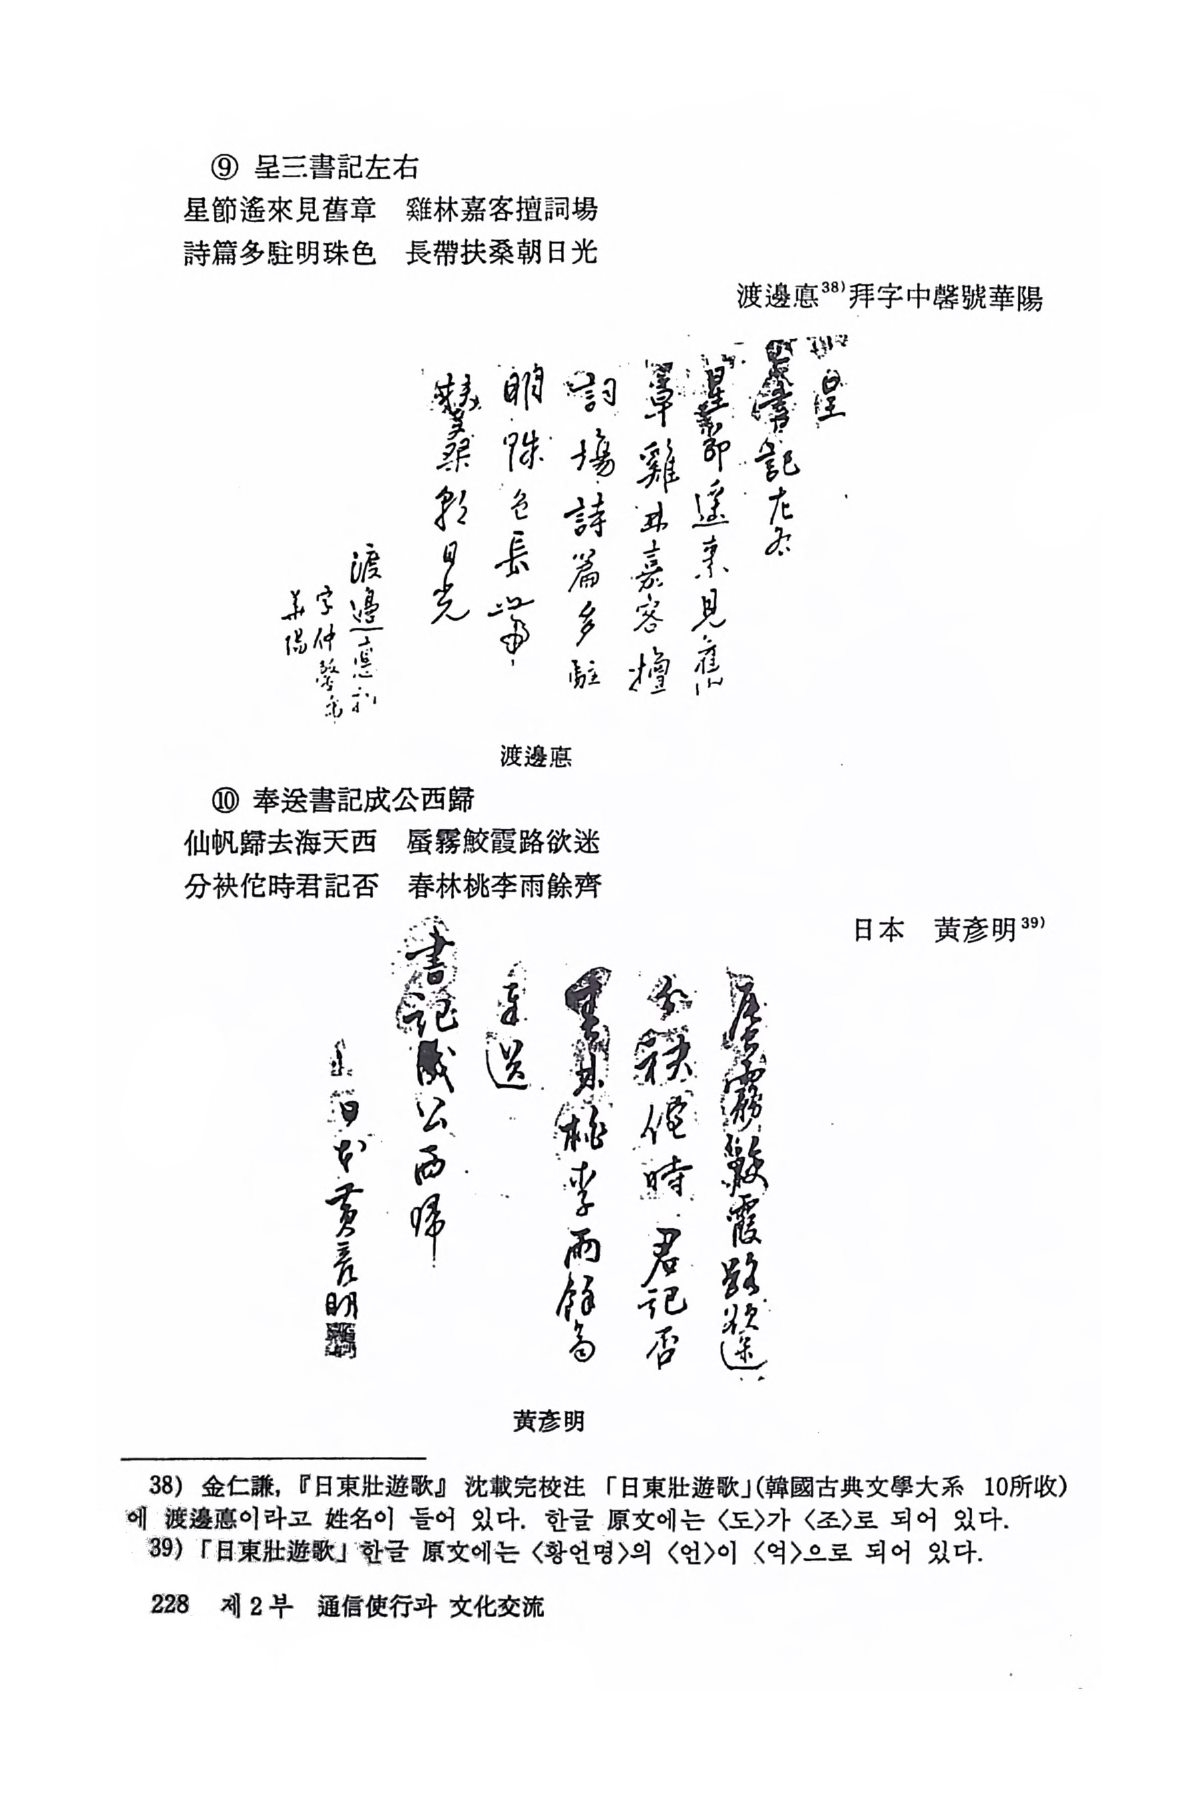 ⑨ 呈三書記左右
星節遙來見舊章　雞林嘉客擅詞場
詩篇多駐明珠色　長帶扶桑朝日光
渡邊悳³⁸⁾拜字中馨號華陽
呈
書記左右
星節遙來見舊
章雞林嘉客擅
詞場詩篇多駐
明珠色長帶
扶桑朝日光
渡邊悳拜
字仲馨號
華陽
渡邊悳
⑩ 奉送書記成公西歸
仙帆歸去海天西　蜃霧鮫霞路欲迷
分袂佗時君記否　春林桃李雨餘齊
日本　黃彥明³⁹⁾
蜃霧鮫霞路欲迷
分袂佗時君記否
春林桃李雨餘齊
奉送
書記成公西歸
日本黃彥明
黃彥明
38) 金仁謙, 『日東壯遊歌』 沈載完校注 「日東壯遊歌」(韓國古典文學大系 10所收)
에 渡邊悳이라고 姓名이 들어 있다. 한글 原文에는 〈도〉가 〈조〉로 되어 있다.
39) 「日東壯遊歌」 한글 原文에는 〈황언명〉의 〈언〉이 〈억〉으로 되어 있다.
228 제2부 通信使行과 文化交流